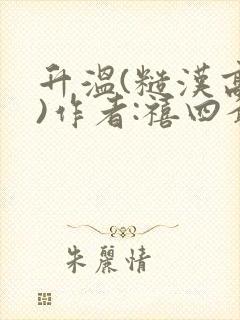 升温(糙漢高
)作者:禧四
朱麗情